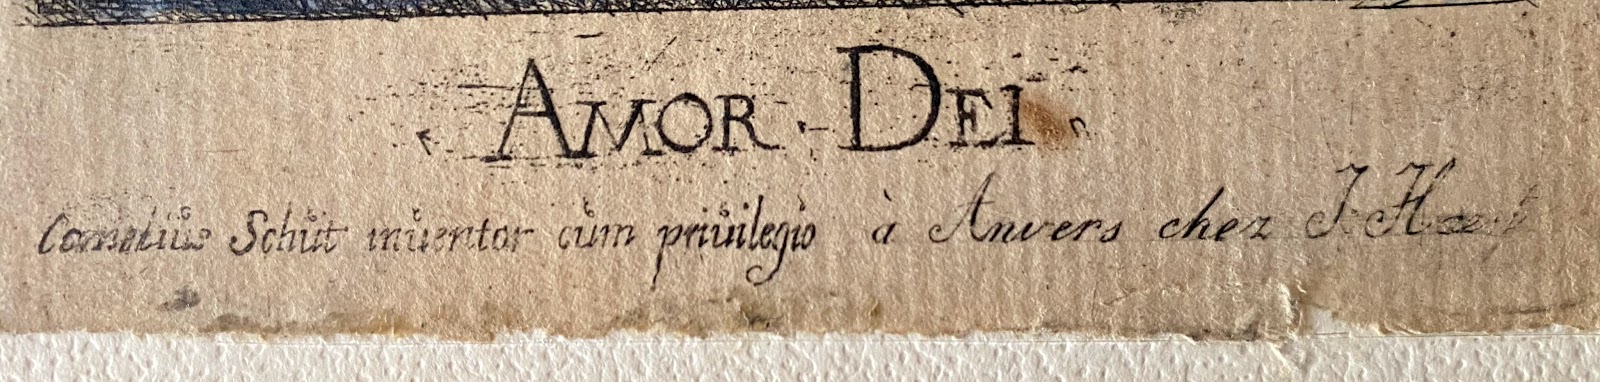 AMOR DEI
Cornelius Schut inventor cum priuilegio à Anvers chez J.